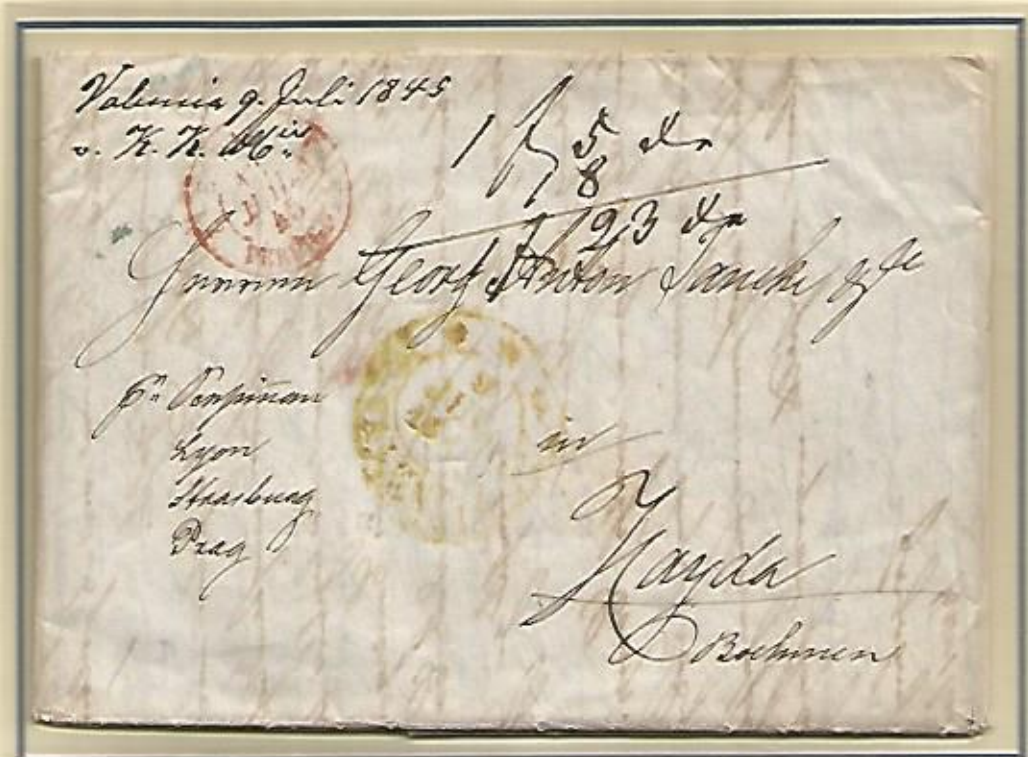 Valencia 9. Juli 1845
v. K. K.
1 f 5 xr
8
1 f 23 xr
Herrn Georg Anton Jancke & Co
pr. Perpiñan
Lyon
Strasburg
Prag
in
Hayda
Boehmen